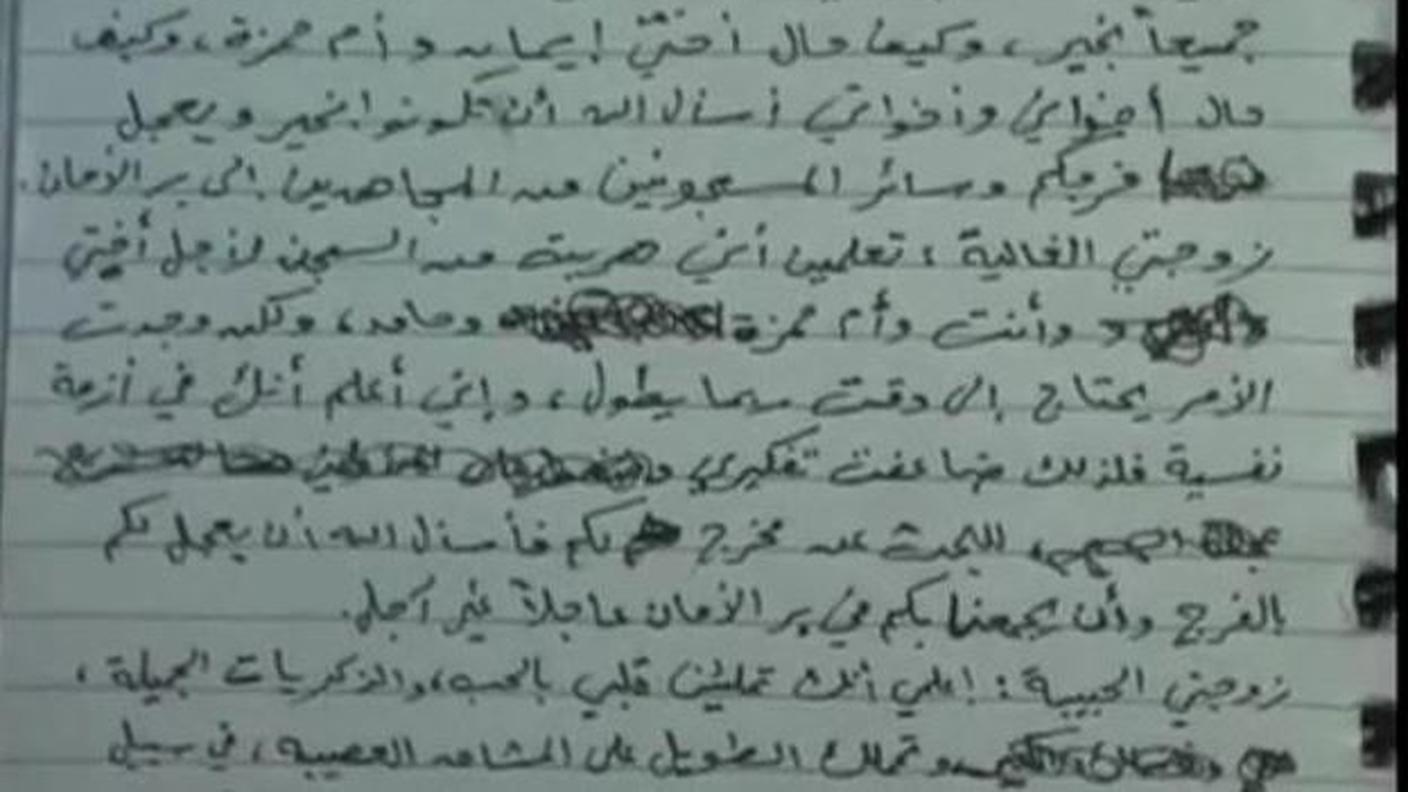 جميعاً بخير، وكيف حال أختيّ إيمان و أم حمزة، وكيف
حال أخواني وأخواتي أسأل الله أن تكونوا بخير ويعجل
فرجكم وسائر المسجونين من المجاهدين إلى بر الأمان.
زوجتي الغالية، تعلمين أني هربت من السجن لأجل أختي
وأنت وأم حمزة وحامد، ولكن وجدت
الأمر يحتاج إلى وقت ربما يطول، وإني أعلم أنك في أزمة
نفسية فلذلك ضاعفت تفكيري
للبحث عن مخرج لكم فأسأل الله أن يعجل لكم
بالفرج وأن يجمعنا بكم في بر الأمان عاجلاً غير آجل.
زوجتي الحبيبة: اعلمي أنك تملئين قلبي بالحب، والذكريات الجميلة،
وتحملك الطويل على المشاهد العصيبة، في سبيل